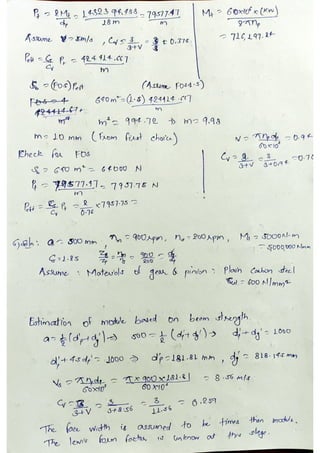 Pt = 2Mt / dp = 14323944.88 / 18m = 79577.47 / m
Mt = 60×10⁶ × (KW) / 2πnp
= 716,197.24
Assume V = 5m/s , Cv = 3 / 3+V = 3 / 8 = 0.375
Peff = Cs / Cv Pt = 424414.667 / m
Sb = (FOS) Peff (Assume FOS=1.5)
640m² = (1.5) 424414.667 / m
m³ = 994.72 m = 9.98
m = 10 mm (from first choice)
V = πnpdp / 60×10³ = 0.94
Check for FOS
Cv = 3 / 3+V = 3 / 3+0.94 = 0.76
Sb = 640 m² = 64000 N
Pt = 79577.47 / m = 7957.75 N
Peff = Cs / Cv Pt = 2 / 0.76 × 7957.75 =
a = 500 mm , np = 900rpm, ng = 200rpm, Mt = 5000N-m
= 5000000Nmm
Cs = 1.25 Zg / Zp = np / ng = 900 / 200
Assume : Materials of gear & pinion : Plain Carbon steel
Sut = 600 N/mm²
Estimation of module based on beam strength
a = ½ (dp' + dg') → 500 = ½ (dp' + dg') → dp' + dg' = 1000
dp' + 4.5dp' = 1000 → dp' = 181.81 mm , dg' = 818.145 mm
V = πnpdp / 60×10³ = π × 900 × 181.81 / 60×10³ = 8.56 m/s
Cv = 3 / 3+V = 3 / 3+8.56 = 3 / 11.56 = 0.259
The face width is assumed to be times than module.
The lewis form factor is unknow at the stage.